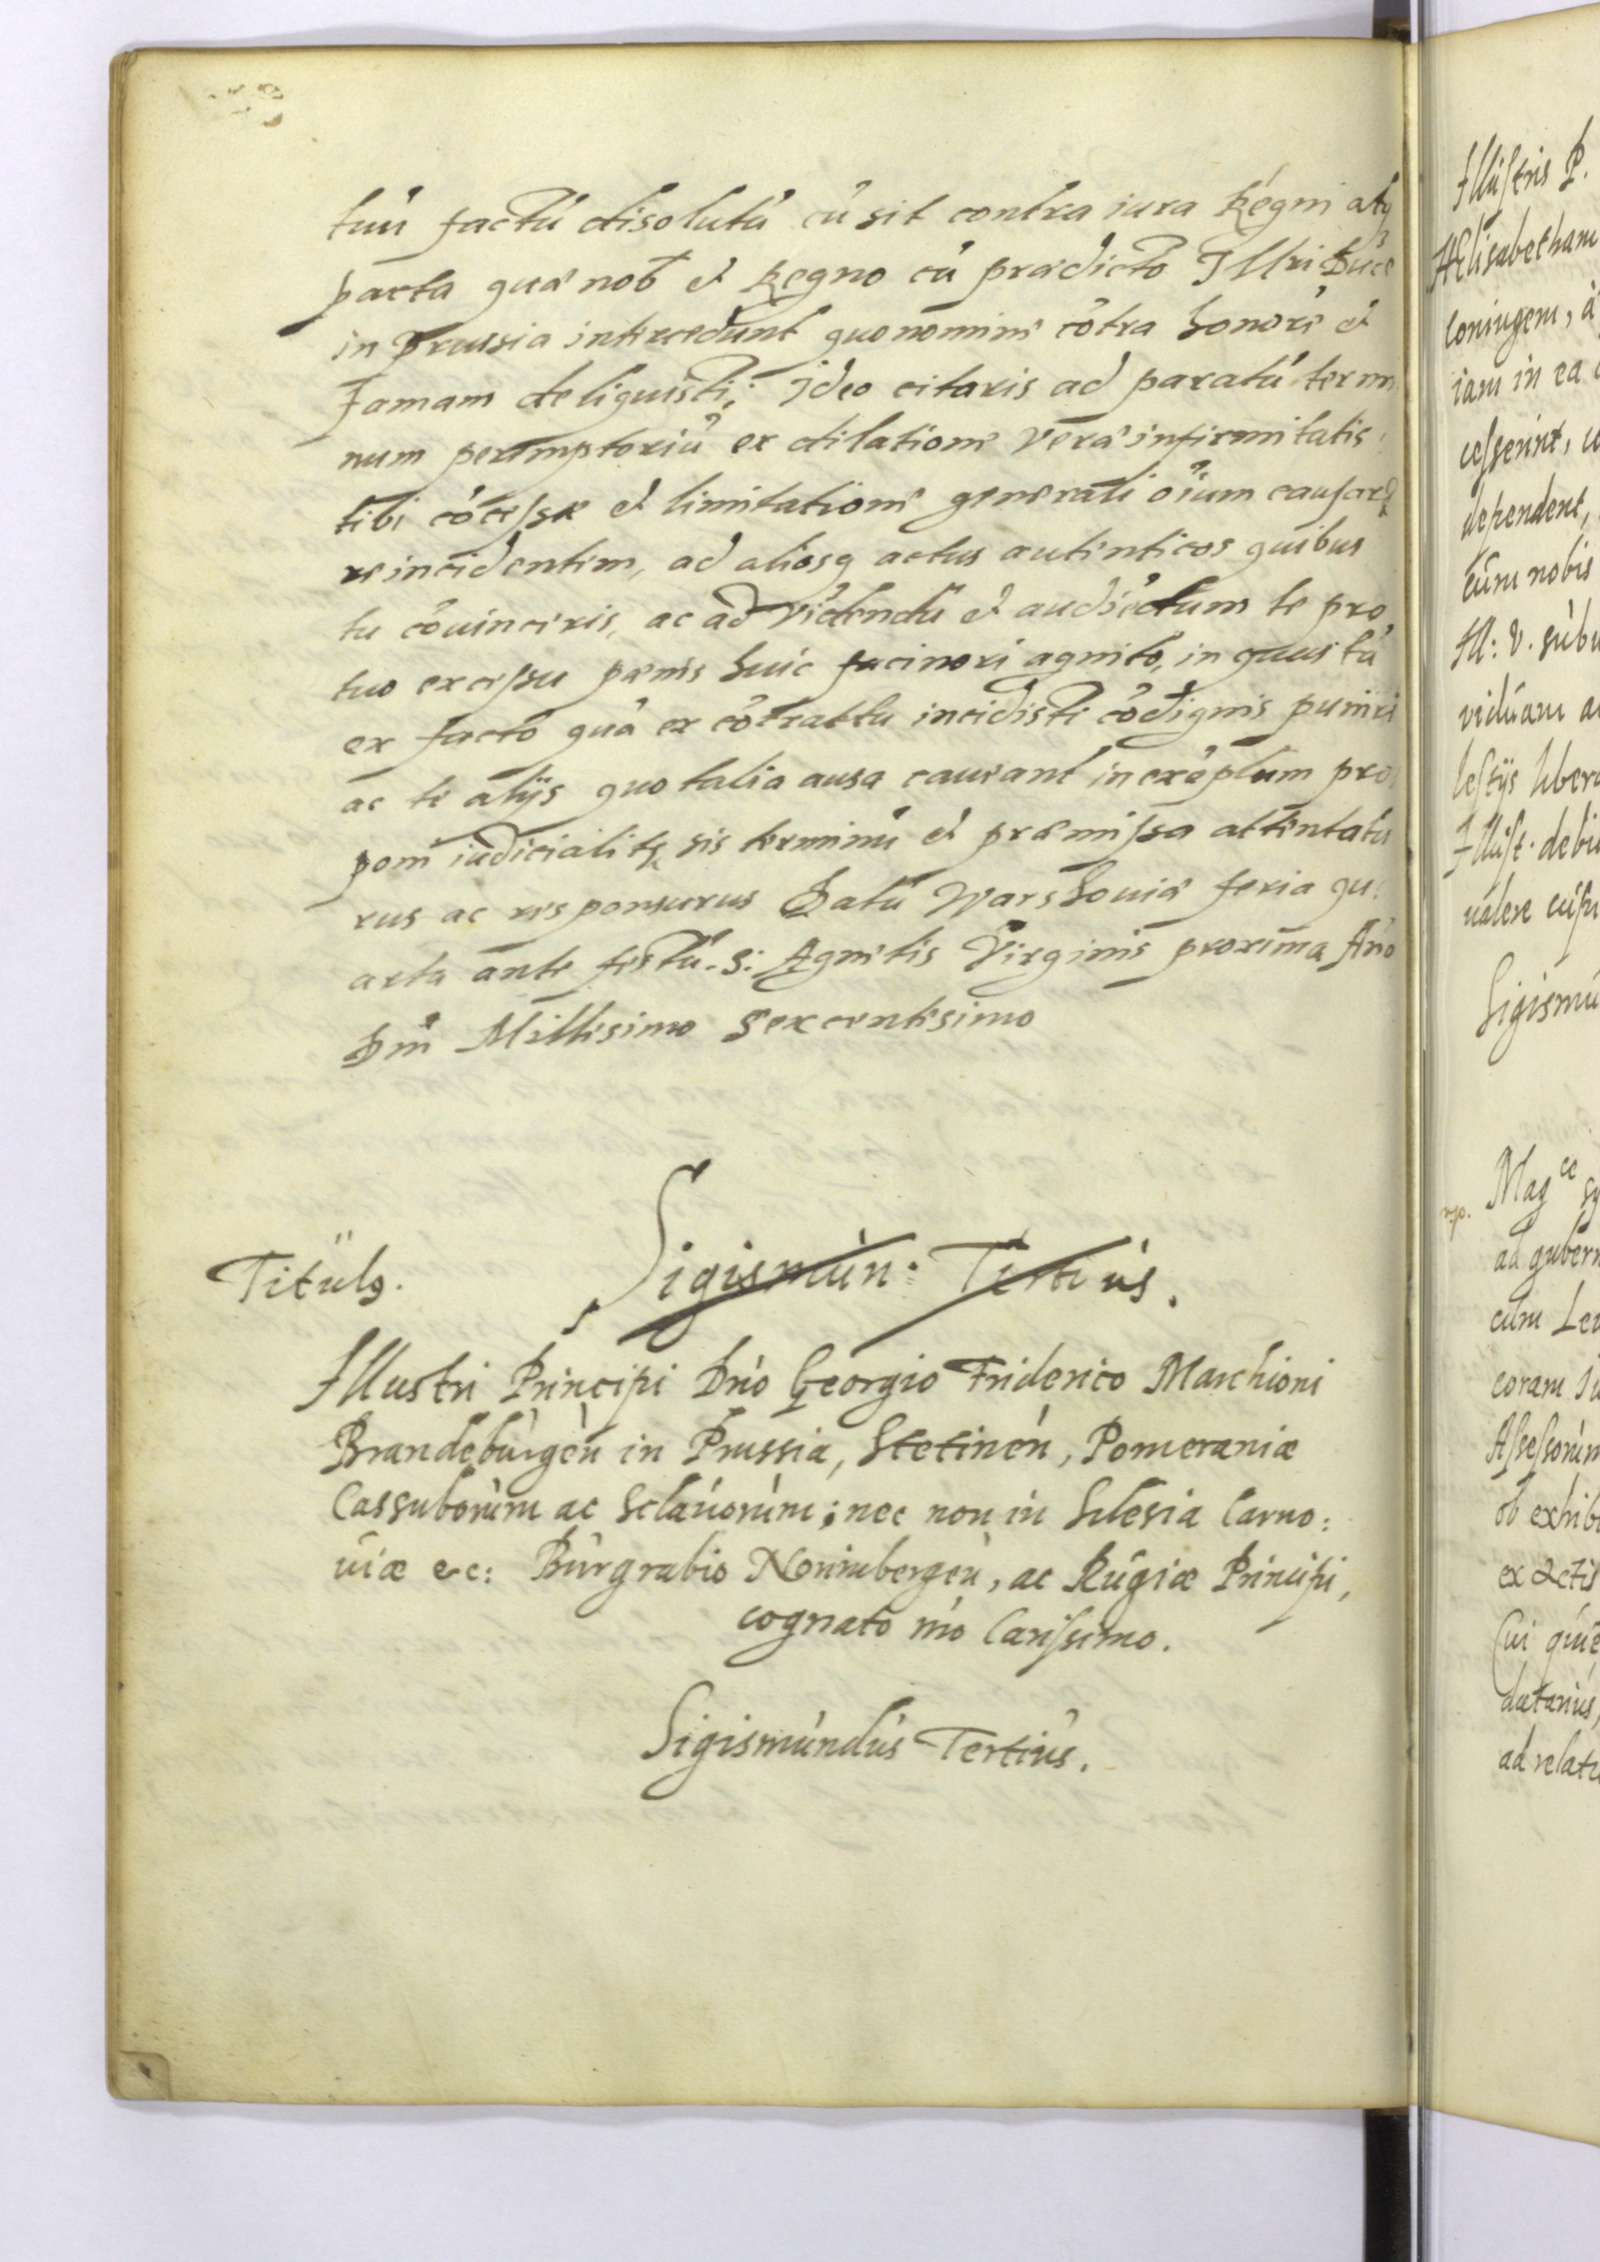 tuũ factũ disolutũ cũ sit contra iura Regni atq3
pacta quæ nob et Regno cũ prædicto Illri Duce
in prussia intercedunt quo nomine cõtra honorẽ et
famam deliquisti; Ideo citaris ad paratũ termi
num peremptoriũ ex dilatione veræ infirmitatis
tibi cõcessæ et limitatione generali oĩum causarũ
reincidentem, ad aliosq actus autenticos quibus
tu cõuinceris, ac ad videndũ et audiedum te pro
tuo excessu pænis huic facinori agnito, in quas tũ
ex facto quã ex cõtrattu incidisti cõdignis puniri
ac te alijs quo talia ausa caueant in exẽplum pro
poni iudicialitr sis terminũ et præmissa attentatu
rus ac responsurus Datũ Warshouiæ feria qu
arta ante festũ S: Agnetis Virginis proxima Año
Dm̃ Millesimo Sexcentesimo
Sigismùn: Tertiùs.
Titùlg.
Illustri Principi Dño Georgio Friderico Marchioni
Brandebùrgeñ in Prussia, Stetineñ, Pomeraniæ
Cassuborùm ac Sclaùorùm; nec non in Silesia Carno:
uiæ &c: Bùrgrabio Norimbergeñ, ac Rùgiæ Principi,
cognato ñro Carissimo.
Sigismùndùs Tertiùs.
Illùstris P.
Elisabetham
coniugem, à
iam in ea
cesserint, u
dependent,
cùm nobis
Ill: V. sùbu
vidùam a
lestijs libera
Illùst. debi
ualere cùpi
Sigismù
Mag^ce
ad gubern
cùm Le
coram Iu
Assessorùm
ob exhib
ex actis
Cui qùe
datariùs,
ad relati